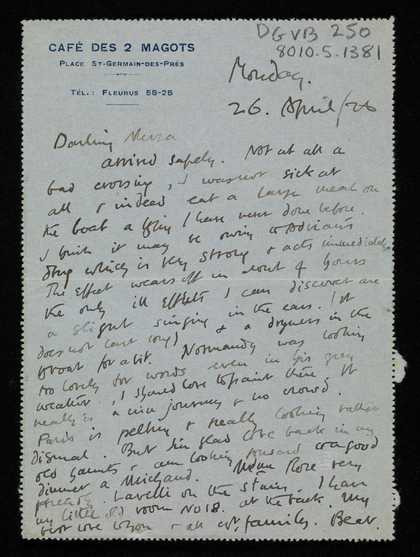 DGVB 250
8010.5.1381
CAFÉ DES 2 MAGOTS
PLACE ST-GERMAIN-DES-PRÉS
TÉL.: FLEURUS 55-25
Monday.
26. April/26
Darling
arrived safely. Not at all a
bad crossing, I was not sick at
all & indeed eat a large meal on
the boat a thing I have never done before.
I think it may be owing to Adrian's
drug which is very strong & acts immediately
The effect wears off in about 4 hours
the only ill effects I can discover are
a slight singing in the ears. (It
does not last long) & a dryness in the
throat for a bit. Normandy was looking
too lovely for words even in this grey
weather. I should love to paint there. It
really is a nice journey & no crowd.
Paris is pelting & really looking rather
dismal. But I'm glad to be back in my
old haunts & am looking forward to a good
dinner a Michaud. Mdme Rose very
Lavelli on the stairs. I have
my little old room No 18. at the back. My
best love & all families. Bear.